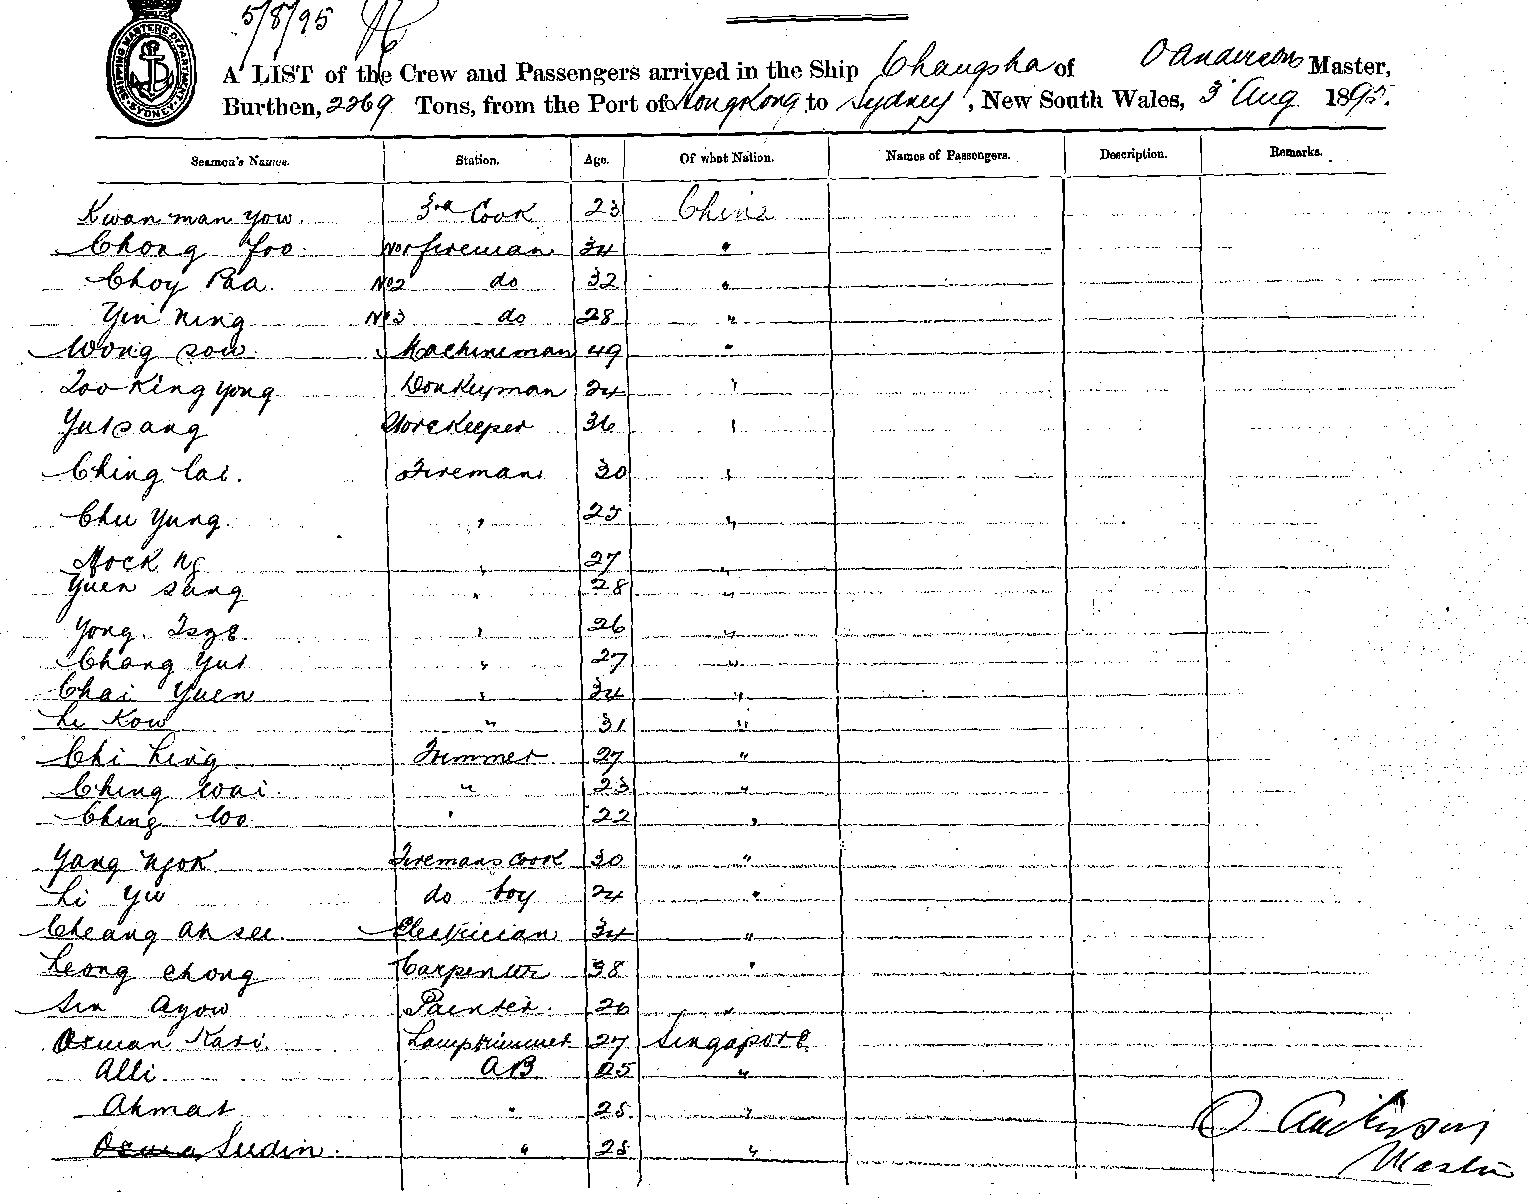 5/8/95
SHIPPING MASTERS DEPARTMENT SYDNEY
A LIST of the Crew and Passengers arrived in the Ship Changsha of O Anderson Master,
Burthen, 2269 Tons, from the Port of Hongkong to Sydney, New South Wales, 3 Aug 1895.
Seamen's Names. Station. Age. Of what Nation. Names of Passengers. Description. Remarks.
Kwan man yow. 3rd Cook 23 China
Chong foo No1 fireman 34 "
Choy Paa. No2 do 32 "
Yin Ning No3 do 28 "
Wong sow. Machineman 49 "
Too King yong Donkeyman 24 "
Yutsang Storekeeper 36 "
Ching lai. Fireman 30 "
Chu Yung. " 25 "
Hock Ng " 27 "
Yuen sang " 28 "
Yong. Tsze. " 26 "
Chang Yut " 27 "
Chai Yuen " 34 "
Li Kow " 31 "
Chi Ling Trimmer 27 "
Ching Wai. " 23 "
Ching Wo " 22 "
Yang Ngok Firemans Cook 30 "
Li Yu do boy 24 "
Cheang Ah see. Electrician 34 "
Leong Chong Carpenter 38 "
Sin Ayow Painter. 26 "
Osman Kasi. Lamptrimmer 27 Singapore
Alli. AB 25 "
Ahmat " 25. "
Sudin. " 25 "
O Anderson
Master